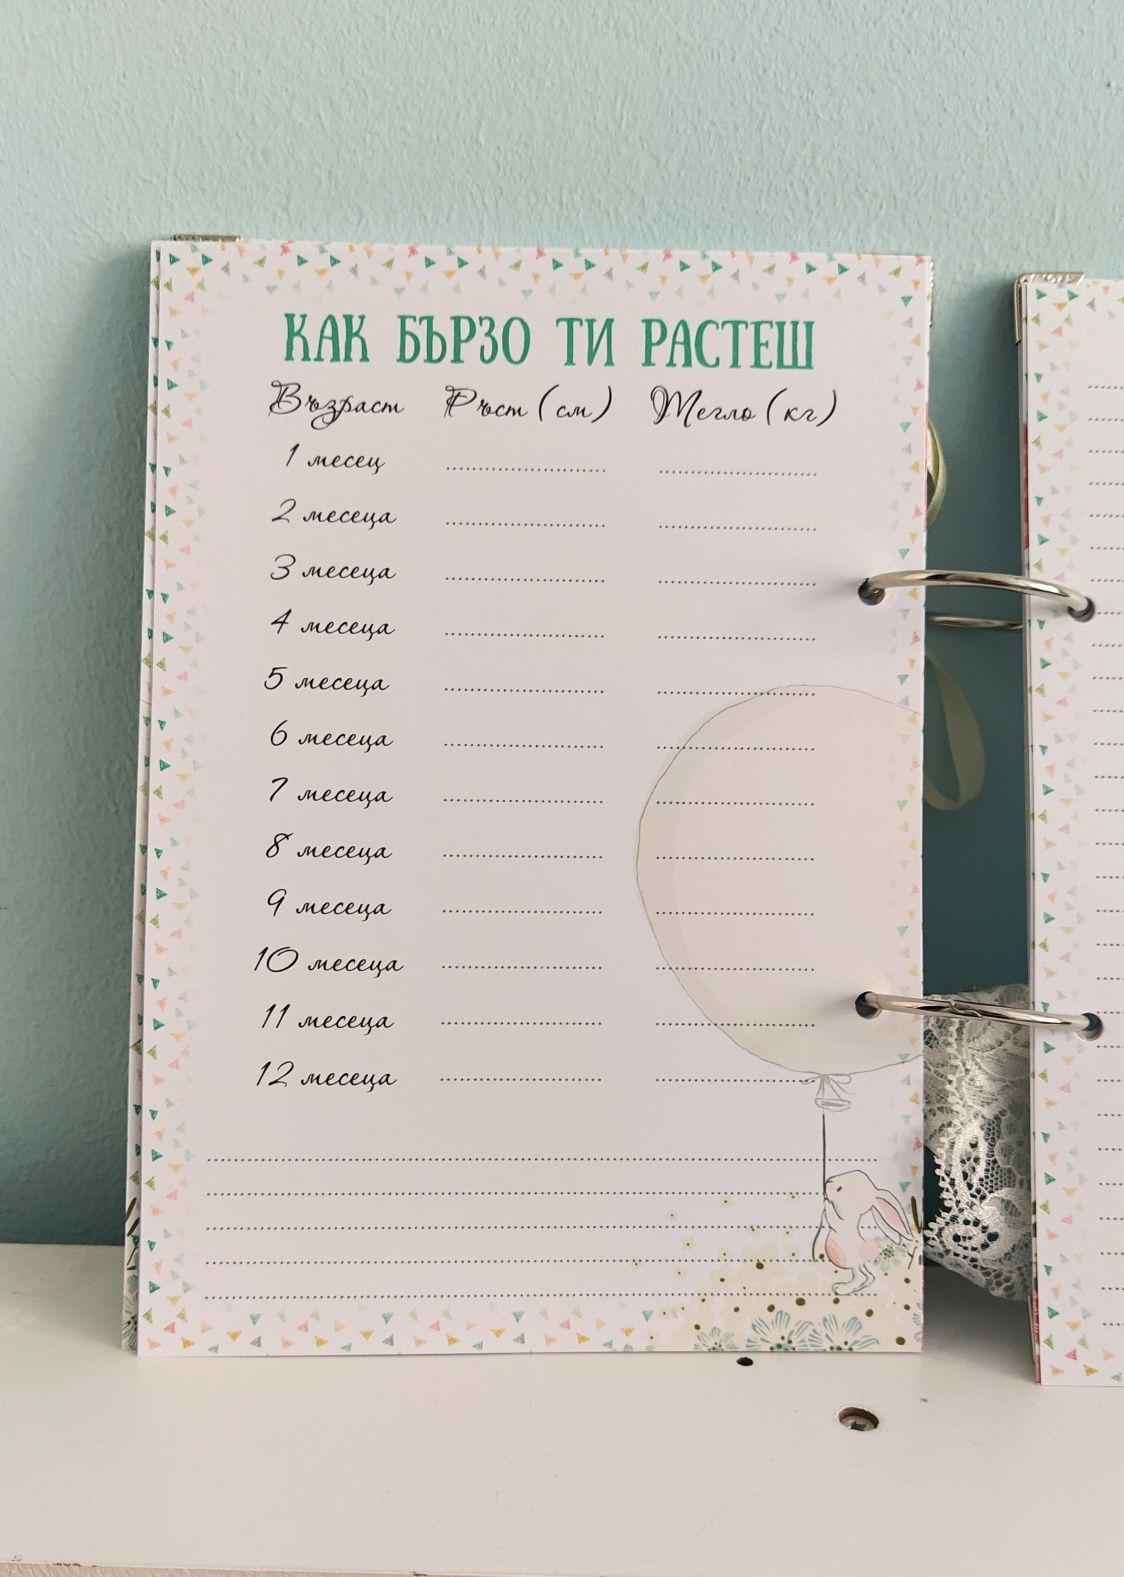 КАК БЪРЗО ТИ РАСТЕШ
Възраст Ръст (см) Тегло (кг)
1 месец
2 месеца
3 месеца
4 месеца
5 месеца
6 месеца
7 месеца
8 месеца
9 месеца
10 месеца
11 месеца
12 месеца